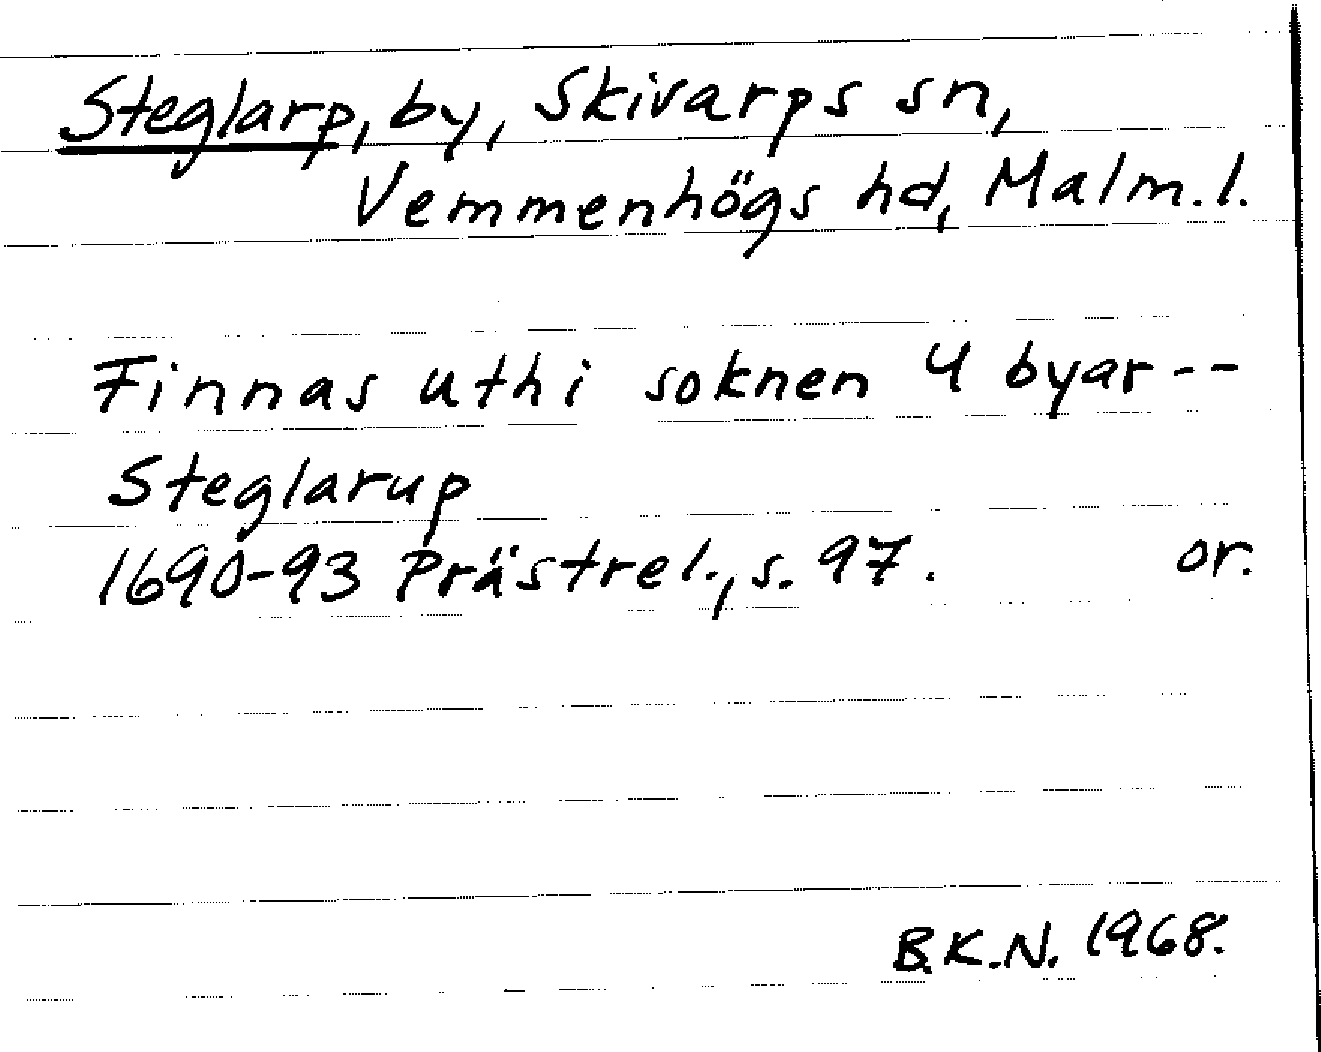 Steglarp, by, Skivarps sn,
Vemmenhögs hd, Malm. l.
Finnas uthi soknen 4 byar --
Steglarup
1690-93 Prästrel., s. 97. or.
B.K.N. 1968.